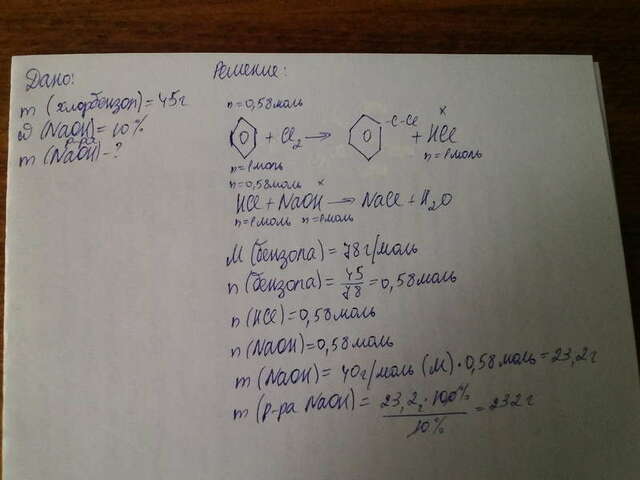 Дано:
m (хлорбензол) = 45г
ω (NaOH) = 10%
р-ра
m (NaOH) - ?
Решение:
n = 0,58 моль
+ Cl2 → -C-Cl + HCl
x
n = 1 моль
n = 1 моль
n = 0,58 моль x
HCl + NaOH → NaCl + H2O
n = 1 моль n = 1 моль
M (бензола) = 78 г/моль
n (бензола) = 45/78 = 0,58 моль
n (HCl) = 0,58 моль
n (NaOH) = 0,58 моль
m (NaOH) = 40 г/моль (M) · 0,58 моль = 23,2 г
m (р-ра NaOH) = 23,2г · 100% / 10% = 232 г